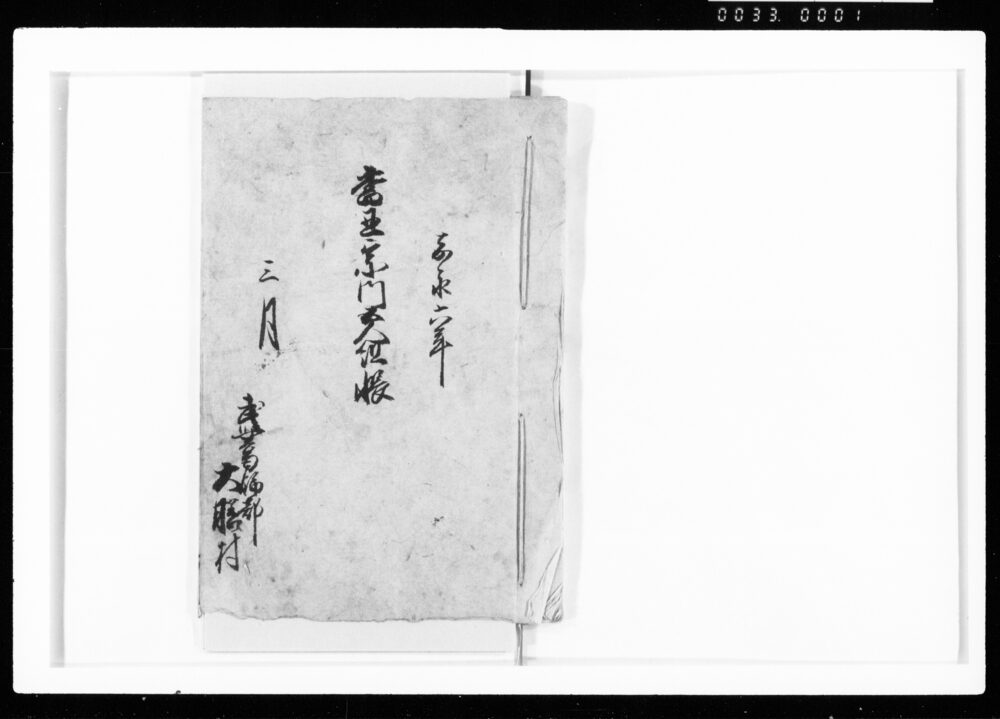 0033. 0001
嘉永六年
當丑宗門五人組帳
三月
武州葛飾郡
大膳村